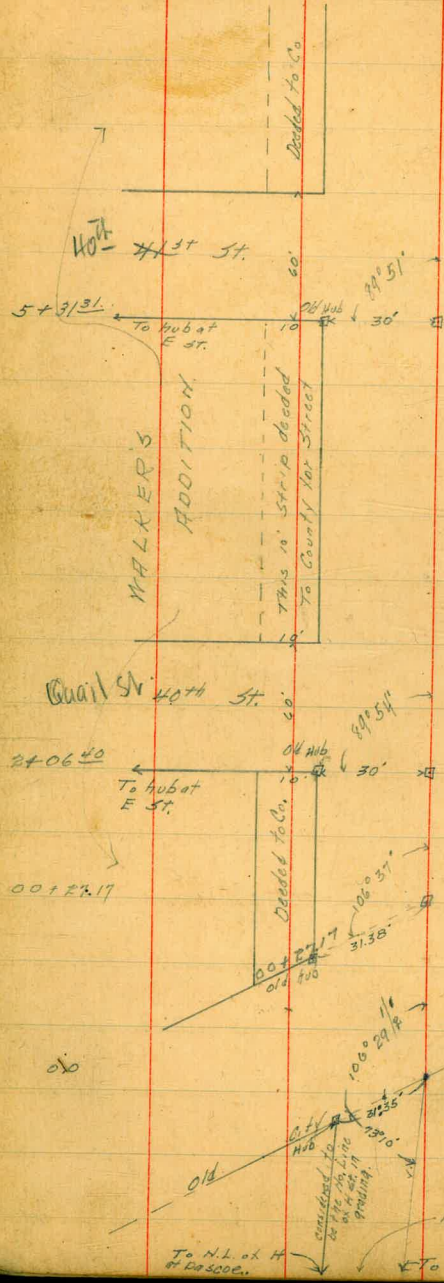 Deeded to Co
40th 41st St.
60'
89° 51'
5+31 31
Old Hub
10'
30'
To hub at
E St.
WALKER'S
ADDITION
This 10' Strip deeded
To County for Street
10'
Quail St. 40th St.
60'
89° 54'
2+06 40
Old Hub
10'
30'
To hub at
E St.
Deeded to Co.
00+27.17
106° 37'
31.38'
00+27.17
Old Hub
0.0
106° 29 1/2'
31.35'
73° 10'
City
Hub
Old
Considered to
be the No. Line
of H St. in
grading.
To N.L. of H
To